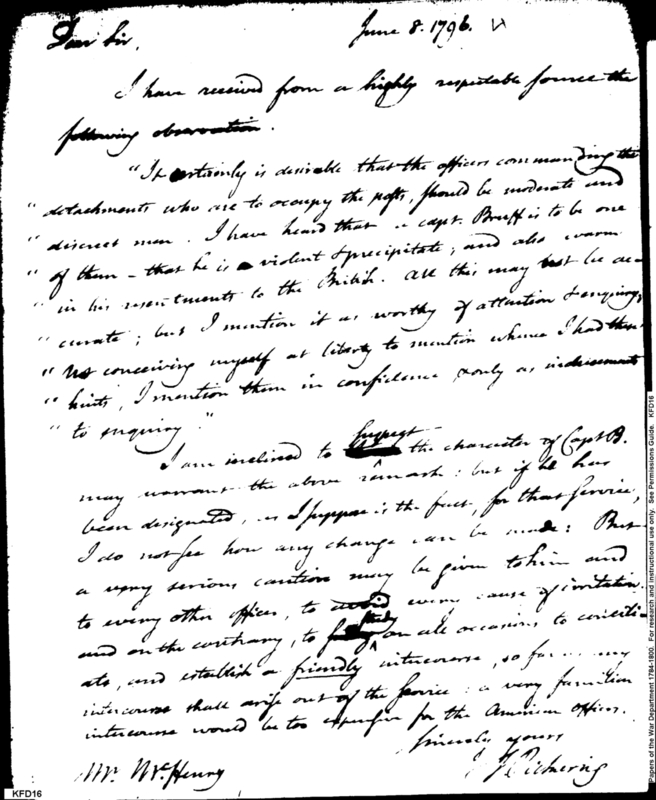 June 8. 1796.
Dear Sir,
I have received from a highly respectable source the
following observation.
"It certainly is desirable that the officers commanding the
" detachments who are to occupy the posts, should be moderate and
" discreet men. I have heard that a capt. Bruff is to be one
" of them – that he is violent & precipitate; and also warm
" in his resentments to the British. All this may not be ac-
" curate; but I mention it as worthy of attention & enquiry.
" Not conceiving myself at liberty to mention whence I had these
" hints, I mention them in confidence & only as inducements
" to enquiry."
I am inclined to suspect the character of Capt. B.
may warrant the above remark: but if he has
been designated, as I suppose is the fact, for that service,
I do not see how any change can be made: But
a very serious caution may be given to him and
to every other officer, to avoid every cause of irritation
and on the contrary, to study on all occasions to concili-
ate, and establish a friendly intercourse, so far as any
intercourse shall arise out of the service: a very familiar
intercourse would be too expensive for the American officers.
Sincerely yours
T. Pickering
Mr. McHenry
KFD16
Papers of the War Department 1784-1800. For research and instructional use only. See Permissions Guide. KFD16